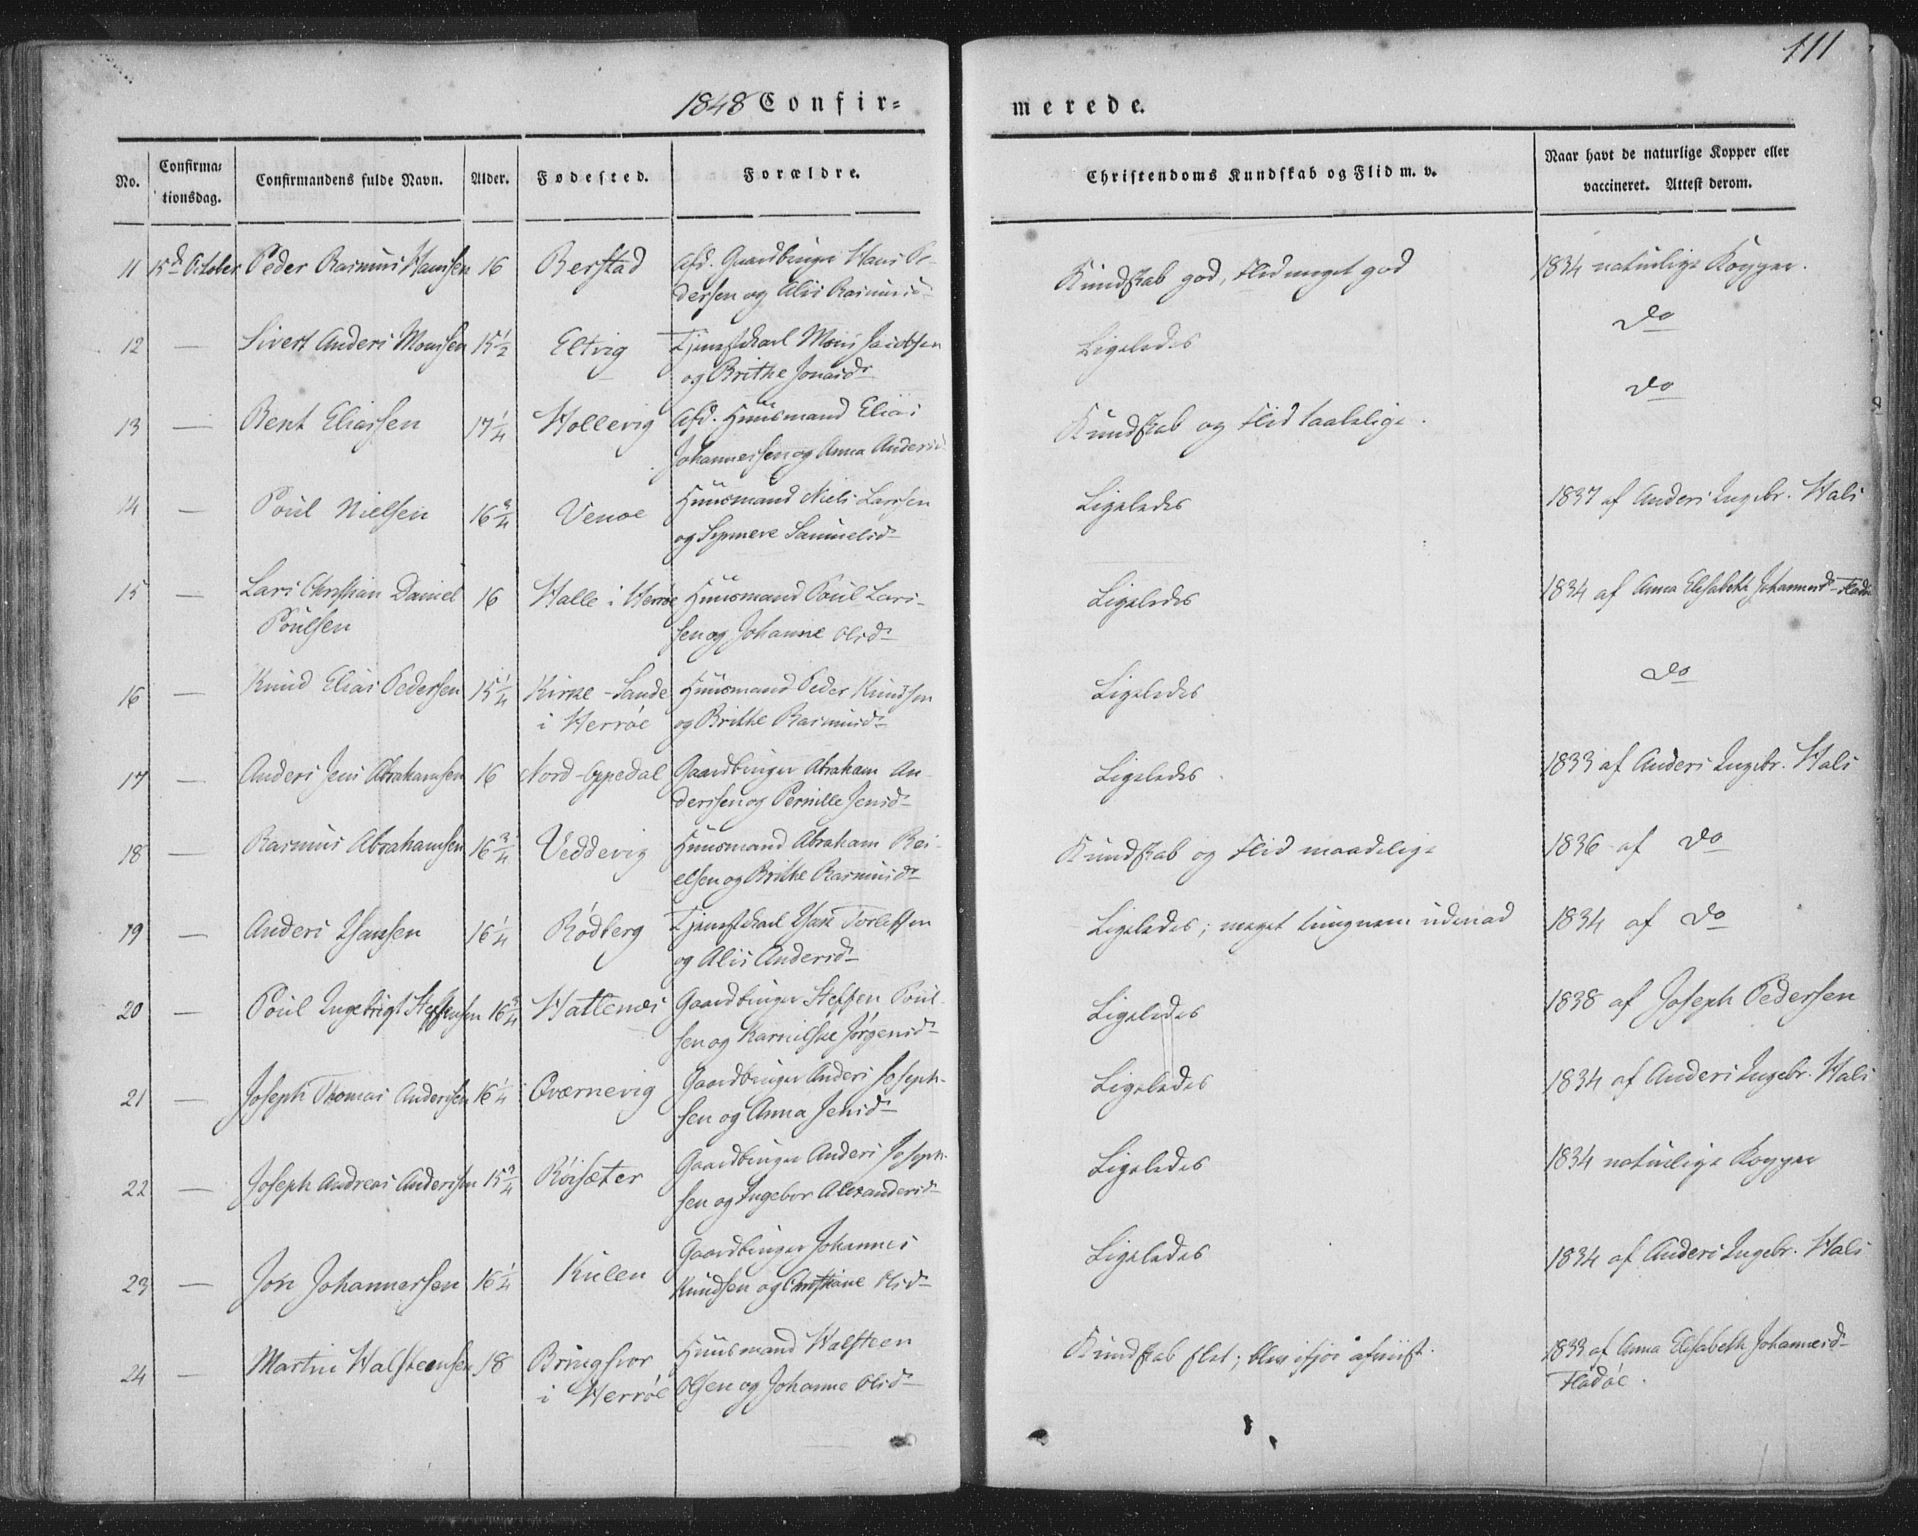 111
1848 Confir=
merede.
No.
Confirma-
tionsdag.
Confirmandens fulde Navn.
Alder.
Fødested.
Forældre.
Christendoms Kundskab og Flid m. v.
Naar havt de naturlige Kopper eller
vaccineret. Attest derom.
11 15de October Peder Rasmus Hanssen 16 Berstad Afd. Gaardbruger Hans Pe-
dersen og Alis Rasmusd.
Kundskab god, Flid meget god
1834 naturlige Kopper.
12 — Sivert Anders Monssen 15½ Eltvig Tjenestekarl Mons Jacobsen
og Brithe Jonasd.
Ligeledes
do
13 — Bent Eliassen 17¼ Hollevig Afd. Huusmand Elias
Johannessen og Anna Andersd.
Kundskab og Flid taalelige.
do
14 — Poul Nielsen 16¾ Venoe Huusmand Niels Larssen
og Synneve Samuelsd.
Ligeledes
1837 af Anders Ingebr. Hals
15 — Lars Christian Daniel 16 Halle i Herrøe Huusmand Poul Lars-
Poulsen
sen og Johanne Olsd.
Ligeledes
1834 af Anna Elisabeth Johannesd. Flade
16 — Knud Elias Pedersen 15¼ Kirke-Sande Huusmand Peder Knudsen
i Herrøe og Brithe Rasmusd.
Ligeledes
do
17 — Anders Jens Abrahamsen 16 Nord-Oppedal Gaardbruger Abraham An-
derssen og Pernille Jensd.
Ligeledes.
1833 af Anders Ingebr. Hals
18 — Rasmus Abrahamsen 16¾ Veddevig Huusmand Abraham Rei-
elsen og Brithe Rasmusd.
Kundskab og Flid maadelige
1836 af do
19 — Anders Hansen 16¼ Rødberg Tjenestekarl Hans Torleifsen
og Alis Andersd.
Ligeledes; meget tungnem udenad
1834 af do
20 — Poul Ingebrigt Steffensen 16¾ Hattenæs Gaardbruger Steffen Poul-
sen og Karnilske Jørgensd.
Ligeledes
1838 af Joseph Pedersen
21 — Joseph Thomas Anderssen 16¼ Qværnevig Gaardbruger Anders Joseph-
sen og Anna Jensd.
Ligeledes
1834 af Anders Ingebr. Hals
22 — Joseph Andreas Anderssen 15¾ Röisæter Gaardbruger Anders Joseph-
sen og Ingebor Alexandersd.
Ligeledes
1834 naturlige Kopper
23 — Jon Johannessen 16¼ Kulen Gaardbruger Johannes
Knudsen og Christiane Olsd.
Ligeledes
1834 af Anders Ingebr. Hals
24 — Martin Halsteensen 18 Bringsvor Huusmand Halsteen
i Herrøe Olsen og Johanne Olsd.
Kundskab slet; blev ifjor afviist.
1833 af Anna Elisabeth Johannesd.
Fladøe.